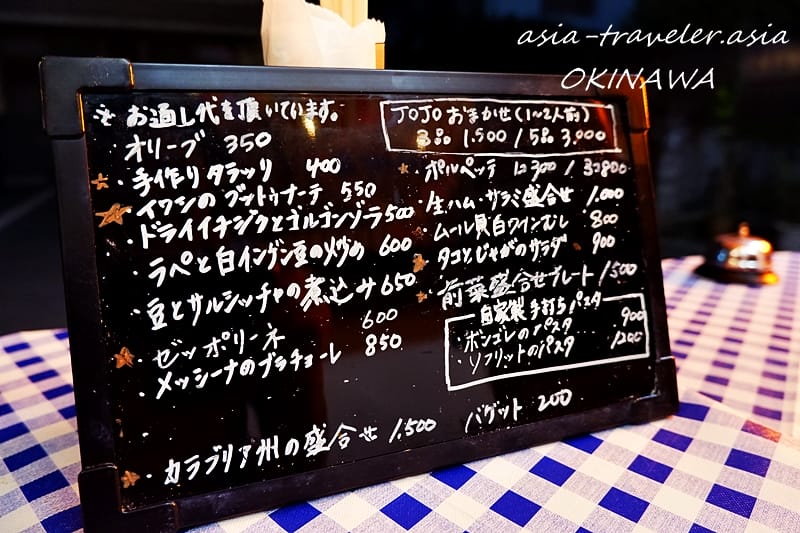 asia-traveler.asia
OKINAWA
※ お通し代を頂いています。
オリーブ 350
・手作りタラッリ 400
・イワシのブットゥナーテ 550
・ドライイチジクとゴルゴンゾーラ 500
・ラペと白インゲン豆の炒め 600
・豆とサルシッチャの煮込み 650
・ゼッポリーネ 600
・メッシーナのブラチョーレ 850
・カラブリア州の盛合せ 1.500
JOJOおまかせ(1〜2人前)
3品 1.500 / 5品 3.000
・ポルペッテ 1コ300 / 3コ800
・生ハム・サラミ盛合せ 1.000
・ムール貝白ワインむし 800
・タコとじゃがのサラダ 900
・前菜盛合せプレート 1500
自家製手打ちパスタ
・ボンゴレのパスタ 900
・ソフリットのパスタ 1200
バゲット 200